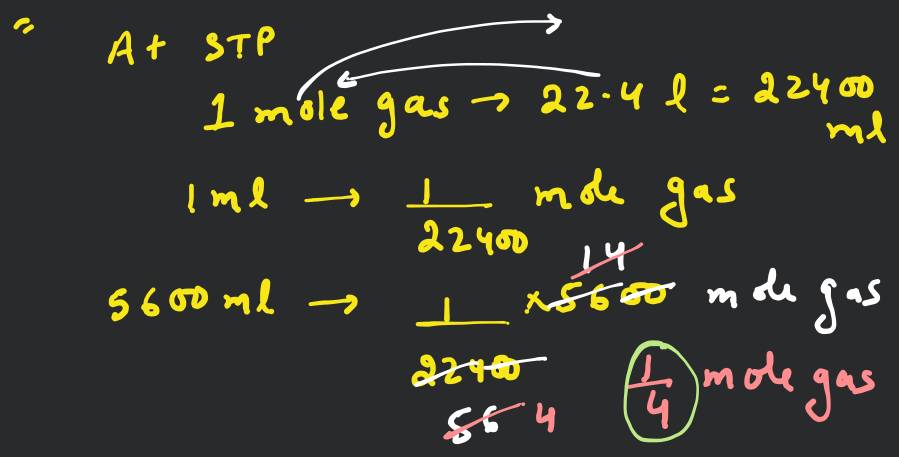 At STP
1 mole gas → 22.4 l = 22400 ml
1 ml → 1/22400 mole gas
14
5600 ml → 1/22400 × 5600 mole gas
56 4
1/4 mole gas